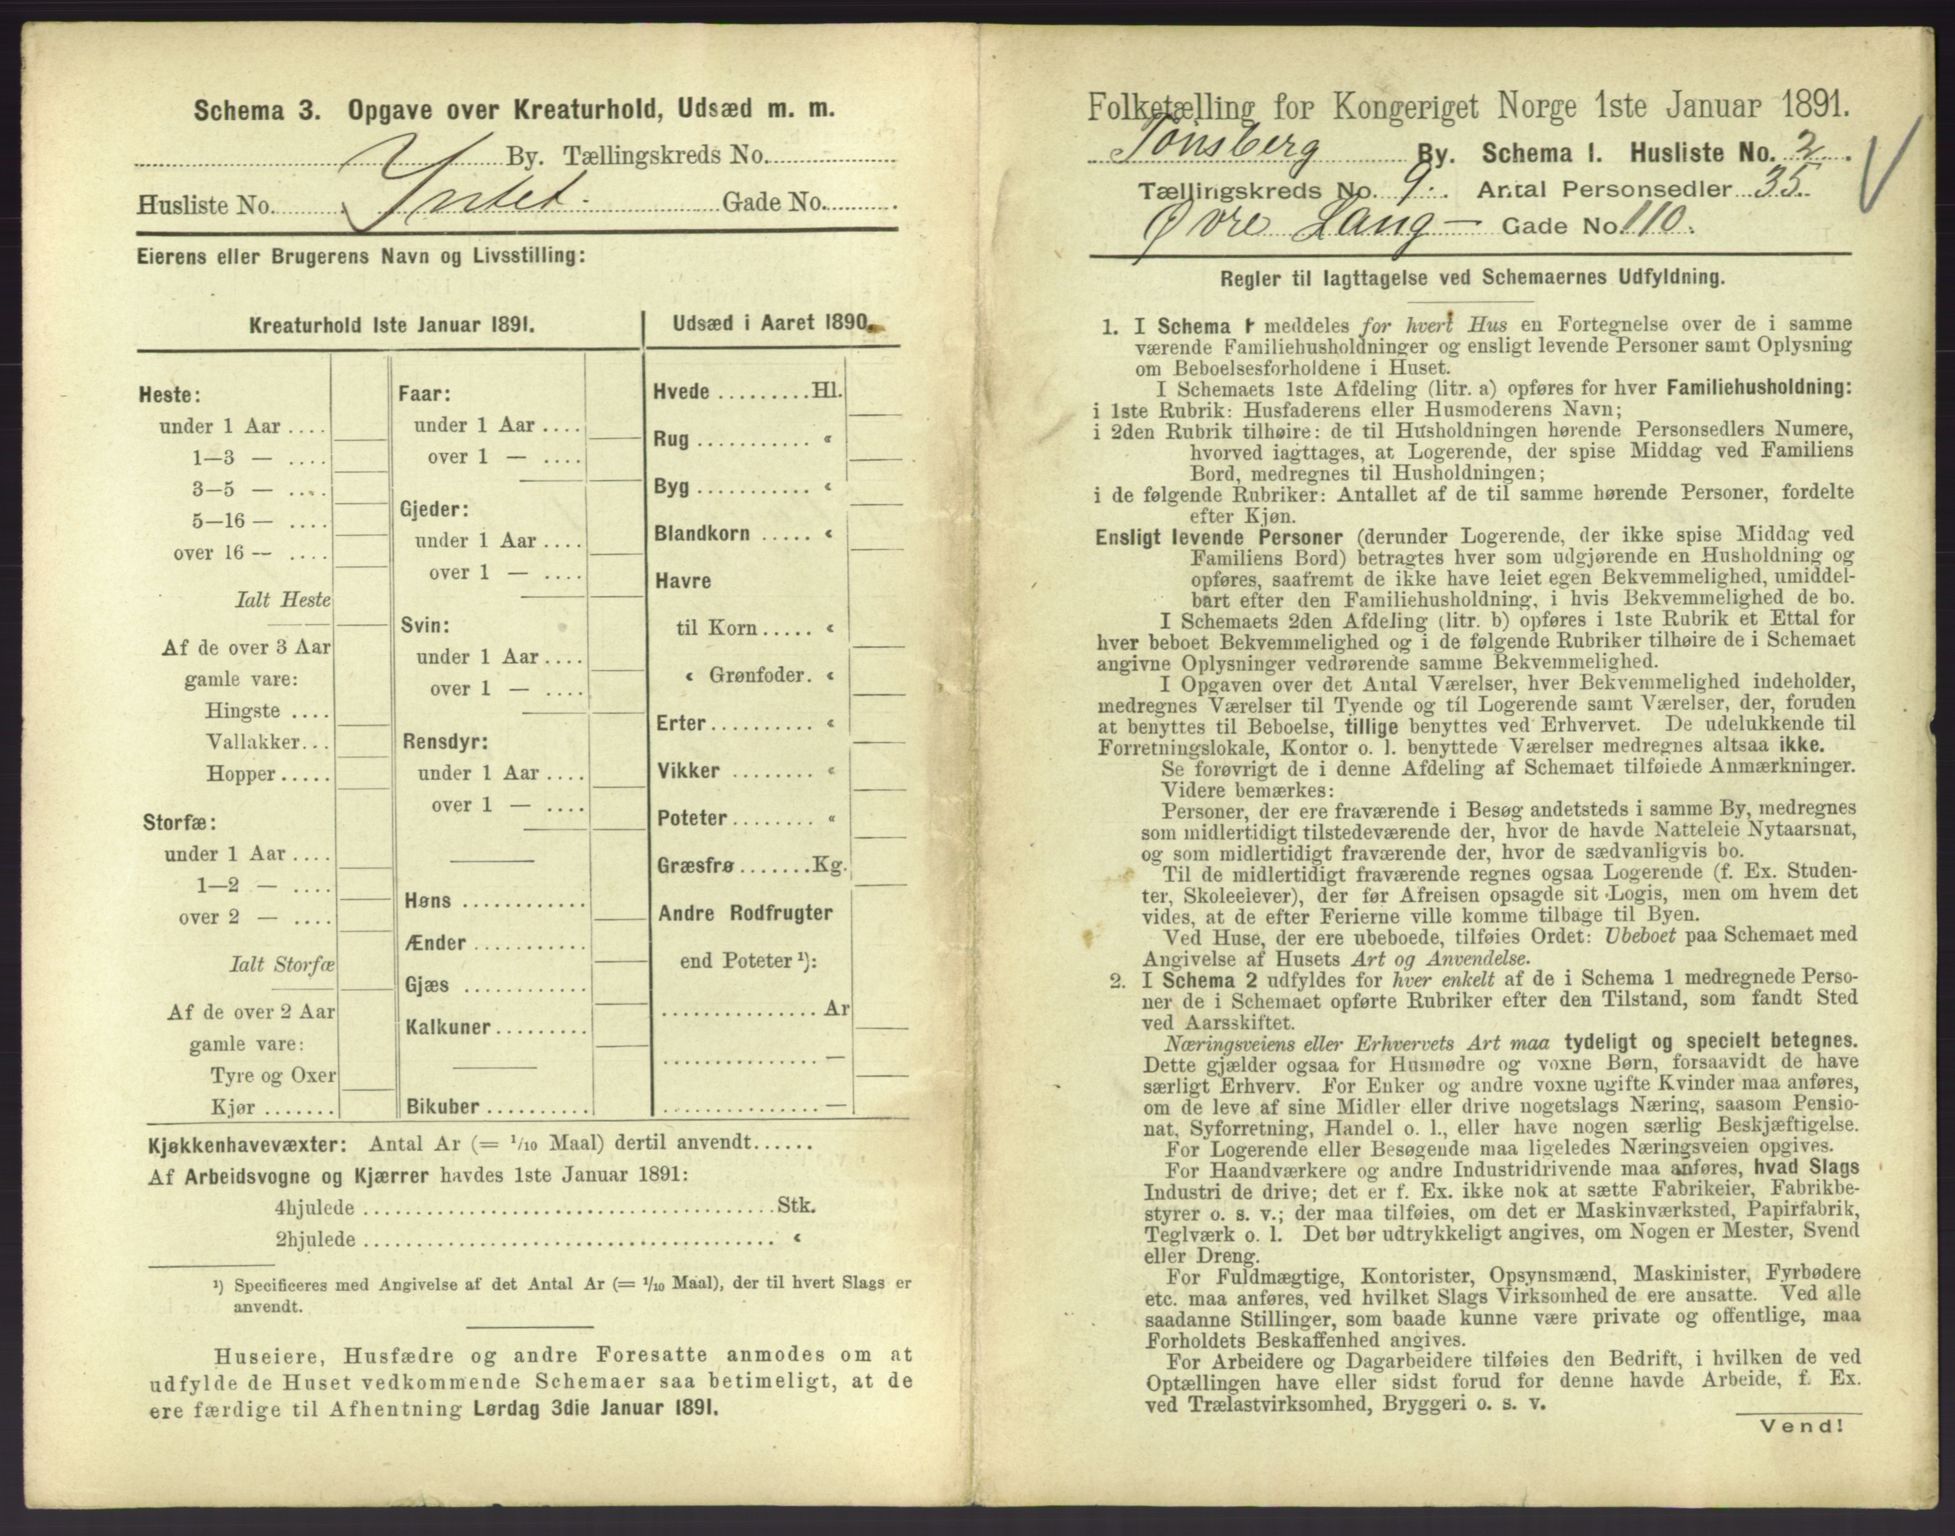 Schema 3. Opgave over Kreaturhold, Udsæd m. m.
By. Tællingskreds No.
Intet.
Husliste No. Gade No.
Eierens eller Brugerens Navn og Livsstilling:
Kreaturhold 1ste Januar 1891.
Heste:
under 1 Aar ....
1—3 — ....
3—5 — ....
5—16 — ....
over 16 — ....
Ialt Heste
Af de over 3 Aar
gamle vare:
Hingste ....
Vallakker...
Hopper.....
Storfæ:
under 1 Aar ....
1—2 — ....
over 2 — ....
Ialt Storfæ
Af de over 2 Aar
gamle vare:
Tyre og Oxer
Kjør .......
Faar:
under 1 Aar ....
over 1 — ....
Gjeder:
under 1 Aar ....
over 1 — ....
Svin:
under 1 Aar ....
over 1 — ....
Rensdyr:
under 1 Aar ....
over 1 — ....
Høns ............
Ænder ...........
Gjæs ............
Kalkuner.........
Bikuber ..........
Udsæd i Aaret 1890.
Hvede .........Hl.
Rug ........... «
Byg ........... «
Blandkorn ..... «
Havre
til Korn ..... «
« Grønfoder. «
Erter .......... «
Vikker ........ «
Poteter ........ «
Græsfrø .......Kg.
Andre Rodfrugter
end Poteter ¹):
............... Ar
............... —
............... —
Kjøkkenhavevæxter: Antal Ar (= 1/10 Maal) dertil anvendt......
Af Arbeidsvogne og Kjærrer havdes 1ste Januar 1891:
4hjulede ........................................Stk.
2hjulede ........................................ «
¹) Specificeres med Angivelse af det Antal Ar (= 1/10 Maal), der til hvert Slags er
anvendt.
Huseiere, Husfædre og andre Foresatte anmodes om at
udfylde de Huset vedkommende Schemaer saa betimeligt, at de
ere færdige til Afhentning Lørdag 3die Januar 1891.
Folketælling for Kongeriget Norge 1ste Januar 1891.
Tønsberg By. Schema 1. Husliste No. 2.
Tællingskreds No. 9. Antal Personsedler 35.
Øvre Lang— Gade No. 110.
Regler til Iagttagelse ved Schemaernes Udfyldning.
1. I Schema 1 meddeles for hvert Hus en Fortegnelse over de i samme
værende Familiehusholdninger og ensligt levende Personer samt Oplysning
om Beboelsesforholdene i Huset.
I Schemaets 1ste Afdeling (litr. a) opføres for hver Familiehusholdning:
i 1ste Rubrik: Husfaderens eller Husmoderens Navn;
i 2den Rubrik tilhøire: de til Husholdningen hørende Personsedlers Numere,
hvorved iagttages, at Logerende, der spise Middag ved Familiens
Bord, medregnes til Husholdningen;
i de følgende Rubriker: Antallet af de til samme hørende Personer, fordelte
efter Kjøn.
Ensligt levende Personer (derunder Logerende, der ikke spise Middag ved
Familiens Bord) betragtes hver som udgjørende en Husholdning og
opføres, saafremt de ikke have leiet egen Bekvemmelighed, umiddel-
bart efter den Familiehusholdning, i hvis Bekvemmelighed de bo.
I Schemaets 2den Afdeling (litr. b) opføres i 1ste Rubrik et Ettal for
hver beboet Bekvemmelighed og i de følgende Rubriker tilhøire de i Schemaet
angivne Oplysninger vedrørende samme Bekvemmelighed.
I Opgaven over det Antal Værelser, hver Bekvemmelighed indeholder,
medregnes Værelser til Tyende og til Logerende samt Værelser, der, foruden
at benyttes til Beboelse, tillige benyttes ved Erhvervet. De udelukkende til
Forretningslokale, Kontor o. l. benyttede Værelser medregnes altsaa ikke.
Se forøvrigt de i denne Afdeling af Schemaet tilføiede Anmærkninger.
Videre bemærkes:
Personer, der ere fraværende i Besøg andetsteds i samme By, medregnes
som midlertidigt tilstedeværende der, hvor de havde Natteleie Nytaarsnat,
og som midlertidigt fraværende der, hvor de sædvanligvis bo.
Til de midlertidigt fraværende regnes ogsaa Logerende (f. Ex. Studen-
ter, Skoleelever), der før Afreisen opsagde sit Logis, men om hvem det
vides, at de efter Ferierne ville komme tilbage til Byen.
Ved Huse, der ere ubeboede, tilføies Ordet: Ubeboet paa Schemaet med
Angivelse af Husets Art og Anvendelse.
2. I Schema 2 udfyldes for hver enkelt af de i Schema 1 medregnede Perso-
ner de i Schemaet opførte Rubriker efter den Tilstand, som fandt Sted
ved Aarsskiftet.
Næringsveiens eller Erhvervets Art maa tydeligt og specielt betegnes.
Dette gjælder ogsaa for Husmødre og voxne Børn, forsaavidt de have
særligt Erhverv. For Enker og andre voxne ugifte Kvinder maa anføres,
om de leve af sine Midler eller drive nogetslags Næring, saasom Pensio-
nat, Syforretning, Handel o. l., eller have nogen særlig Beskjæftigelse.
For Logerende eller Besøgende maa ligeledes Næringsveien opgives.
For Haandværkere og andre Industridrivende maa anføres, hvad Slags
Industri de drive; det er f. Ex. ikke nok at sætte Fabrikeier, Fabrikbe-
styrer o. s. v.; der maa tilføies, om det er Maskinværksted, Papirfabrik,
Teglværk o. l. Det bør udtrykkeligt angives, om Nogen er Mester, Svend
eller Dreng.
For Fuldmægtige, Kontorister, Opsynsmænd, Maskinister, Fyrbødere
etc. maa anføres, ved hvilket Slags Virksomhed de ere ansatte. Ved alle
saadanne Stillinger, som baade kunne være private og offentlige, maa
Forholdets Beskaffenhed angives.
For Arbeidere og Dagarbeidere tilføies den Bedrift, i hvilken de ved
Optællingen have eller sidst forud for denne havde Arbeide, f. Ex.
ved Trælastvirksomhed, Bryggeri o. s. v.
Vend!